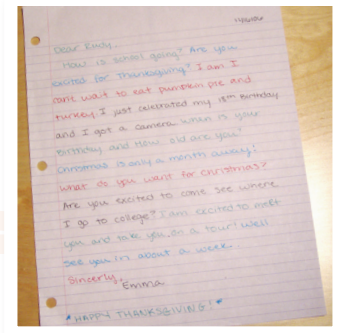 11/16/06
Dear Rudy,
How is school going? Are you
excited for Thanksgiving? I am I
can't wait to eat pumpkin pie and
turkey I just celebrated my 18th Birthday
and I got a camera when is your
birthday and How old are you?
Christmas is only a month away!
What do you want for christmas?
Are you excited to come see where
I go to college? I am excited to meet
you and take you on a tour! Well
see you in about a week.
Sincerly,
Emma
*HAPPY THANKSGIVING!*